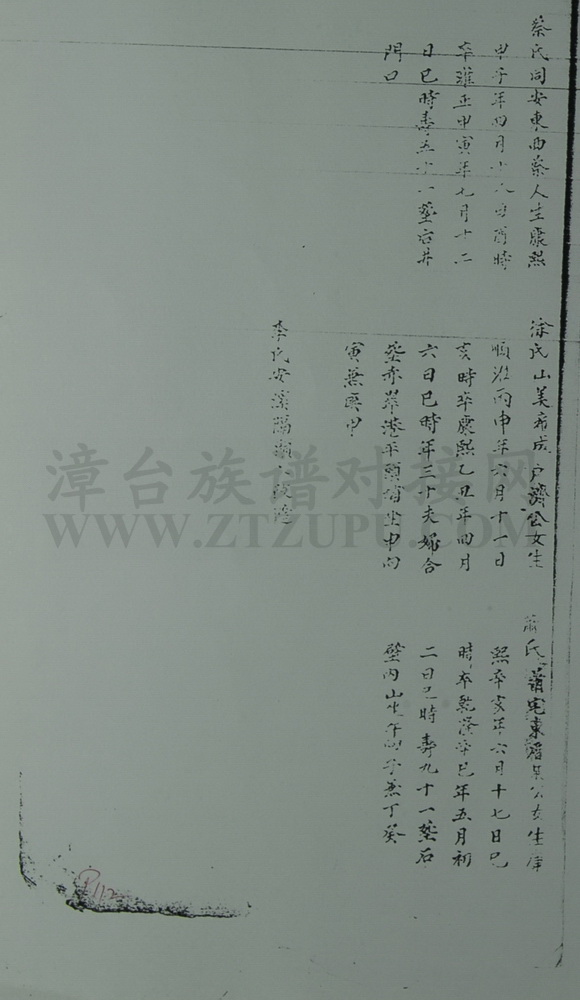 蔡氏同安東西蔡人生康熙
甲子年四月十八日酉時
卒雍正甲寅年七月十二
日巳時壽五十一塟古井
門口
涂氏山美希成戶濟公女生
順治丙申年六月十一日
亥時卒康熙乙丑年四月
六日巳時年三十夫婦合
塟赤岸港平 坐申向
寅兼庚甲
李氏安溪
氏 宅東 公女生康
熙辛亥年六月十七日巳
時卒乾隆辛巳年五月初
二日巳時壽九十一塟石
壁內山坐午向子兼丁癸
漳台族谱对接网
WWW.ZTZUPU.COM
P112